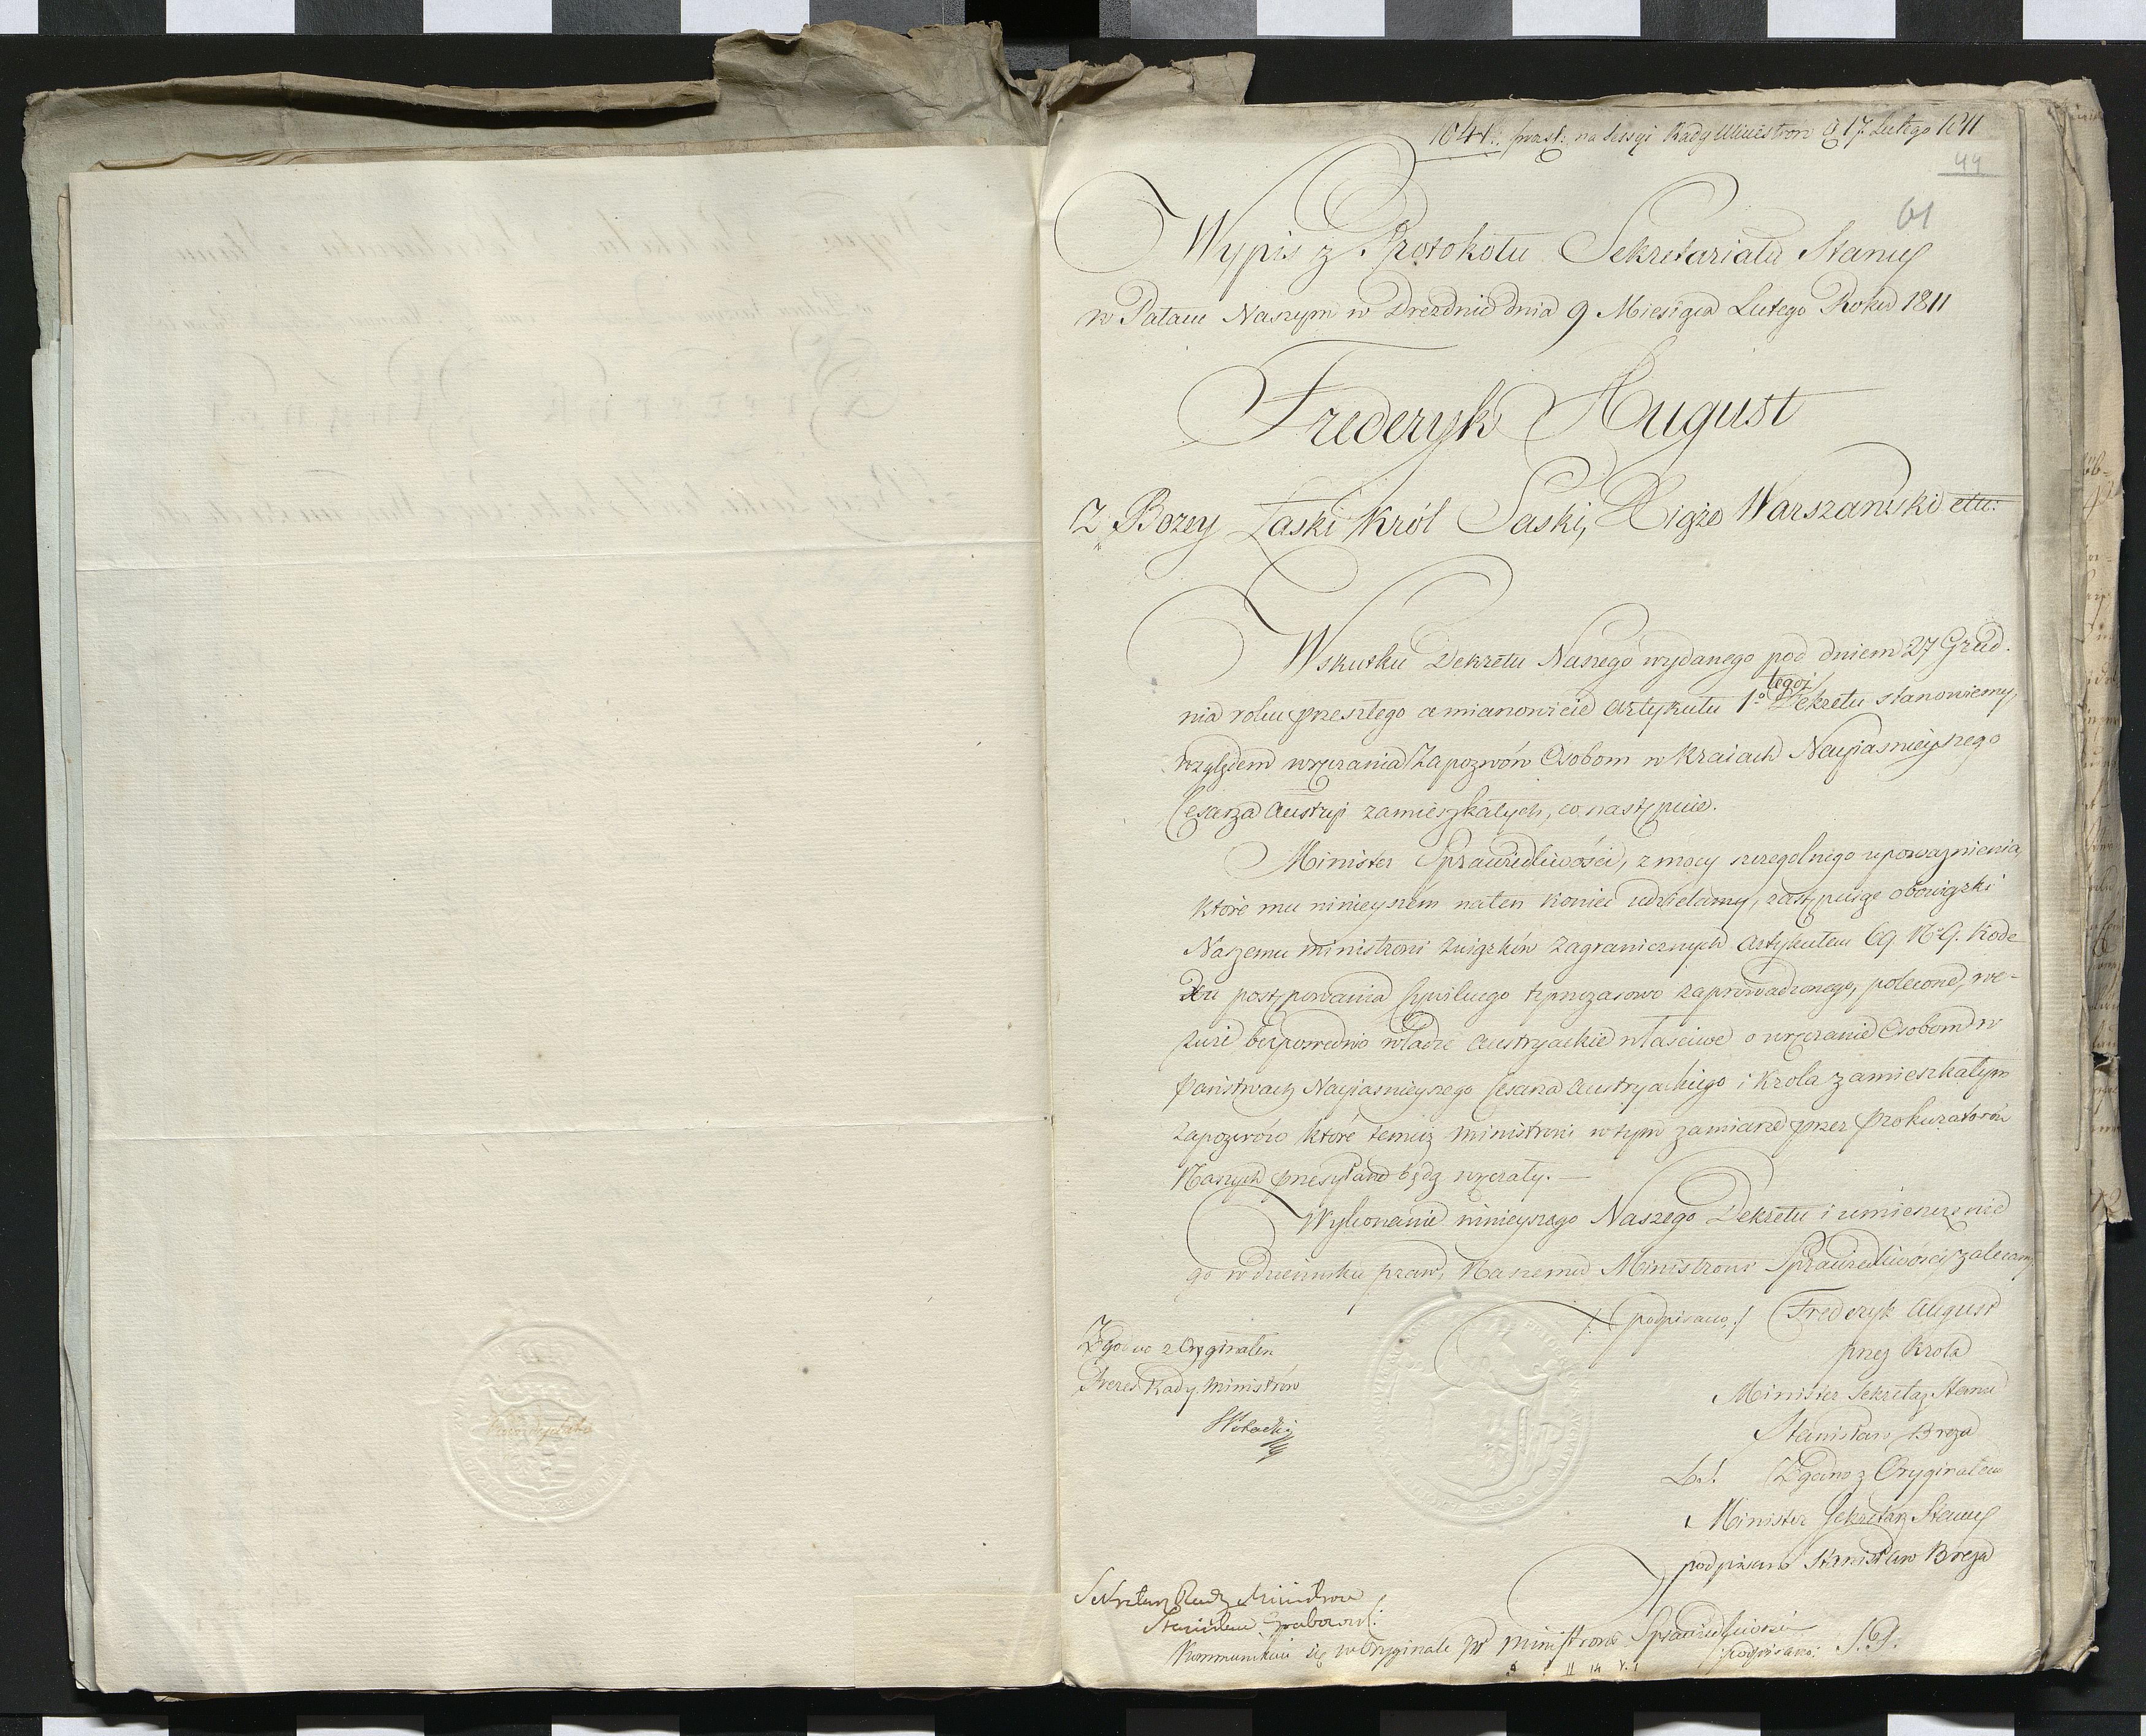 1641. prast: na Sessyi Rady Ministrow d 17 Lutego 1811
44
61
Wypis z Protokołu Sekretariatu Stanu
w Pałacu Naszym w Dreznie dnia 9 Miesiąca Lutego Roku 1811
Frederyk August
z Bozey Łaski Król Saski, Xiąże Warszawski etc:
Wskutku Dekretu Naszego wydanego pod dniem 27 Grud.
nia roku przeszłego a mianowicie Artykułu 1º tegoż Dekretu stanowiemy,
względem wręczania Zapozwów Osobom w Kraiach Nayiasnieyszego
Cesarza Austryi zamieszkałych, co następuie.
Minister Sprawiedliwości, z mocy szczegolnego upoważnienia,
które mu ninieyszém na ten koniec udzielamy, zastępuiąc obowiązki
Naszemu Ministrowi Związków Zagranicznych Artykułem 69 Nº 9. Kode
xu postępowania Cywilnego tymczasowo zaprowadzonego, polecone, we-
zwie bezpośrednio władze Austryackie właściwe o wręczanie Osobom w
Państwach Nayiasnieyszego Cesarza Austryackiego i Krola zamieszkałym
zapozwów które temuż Ministrowi w tym zamiarze przez Prokuratorów
Naszych przesyłane będą wręczały. —
Wykonanie ninieyszego Naszego Dekretu i umieszczenie
go w dzienniku praw, Naszemu Ministrowi Sprawiedliwości zalecamy.
/: podpisano :/ Frederyk August
przez Krola
Minister Sekretarz Stanu
Stanisław Breza
L.S. Zgodno z Oryginałem
Minister Sekretarz Stanu
podpisano Stanisław Breza
Zgodno z Oryginałem
Prezes Rady Ministrów
SPotocki
Sekretarz Rady Ministrow
Stanisław Grabowski
Kommunikuie się w Oryginale JW Ministrowi Sprawiedliwości
podpisano: S. P.